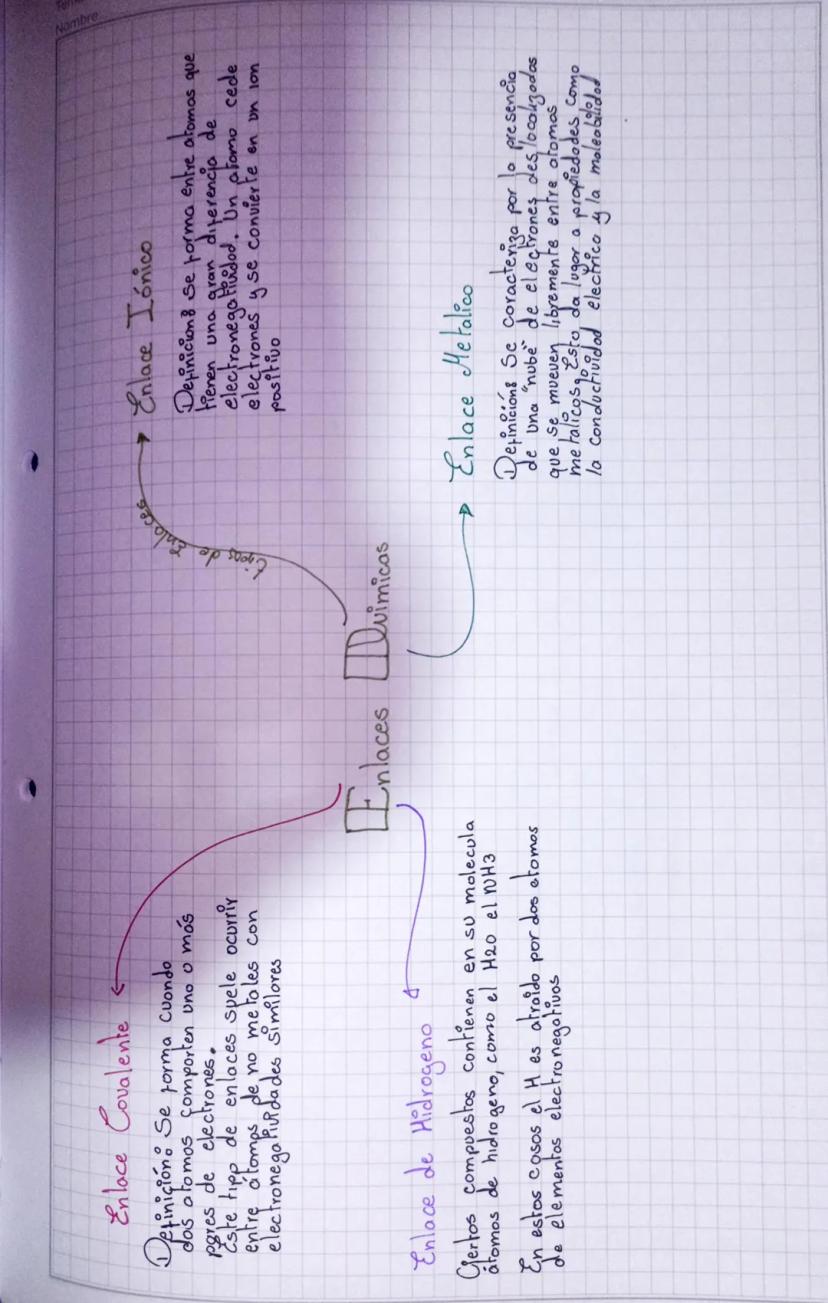 Nombre
Enlaces Quimicos
Enlace Covalente
Definición: Se forma cuando
dos atomos comparten uno o más
pares de electrones.
Este tipo de enlaces suele ocurrir
entre átomos de no metales con
electronegatividades similares
tipos de enlaces
Enlace Iónico
Definicion: Se forma entre atomos que
tienen una gran diferencia de
electronegatividad. Un atomo cede
electrones y se convierte en un ion
positivo
Enlace de Hidrogeno
Ciertos compuestos contienen en su molecula
átomos de hidrogeno, como el H2O el NH3
En estos casos el H es atraido por dos atomos
de elementos electronegativos
Enlace Metalico
Definición: Se caracteriza por la presencia
de una "nube" de electrones deslocalizados
que se mueven libremente entre atomos
metalicos, Esto da lugar a propiedades como
la conductividad electrica y la maleabilidad